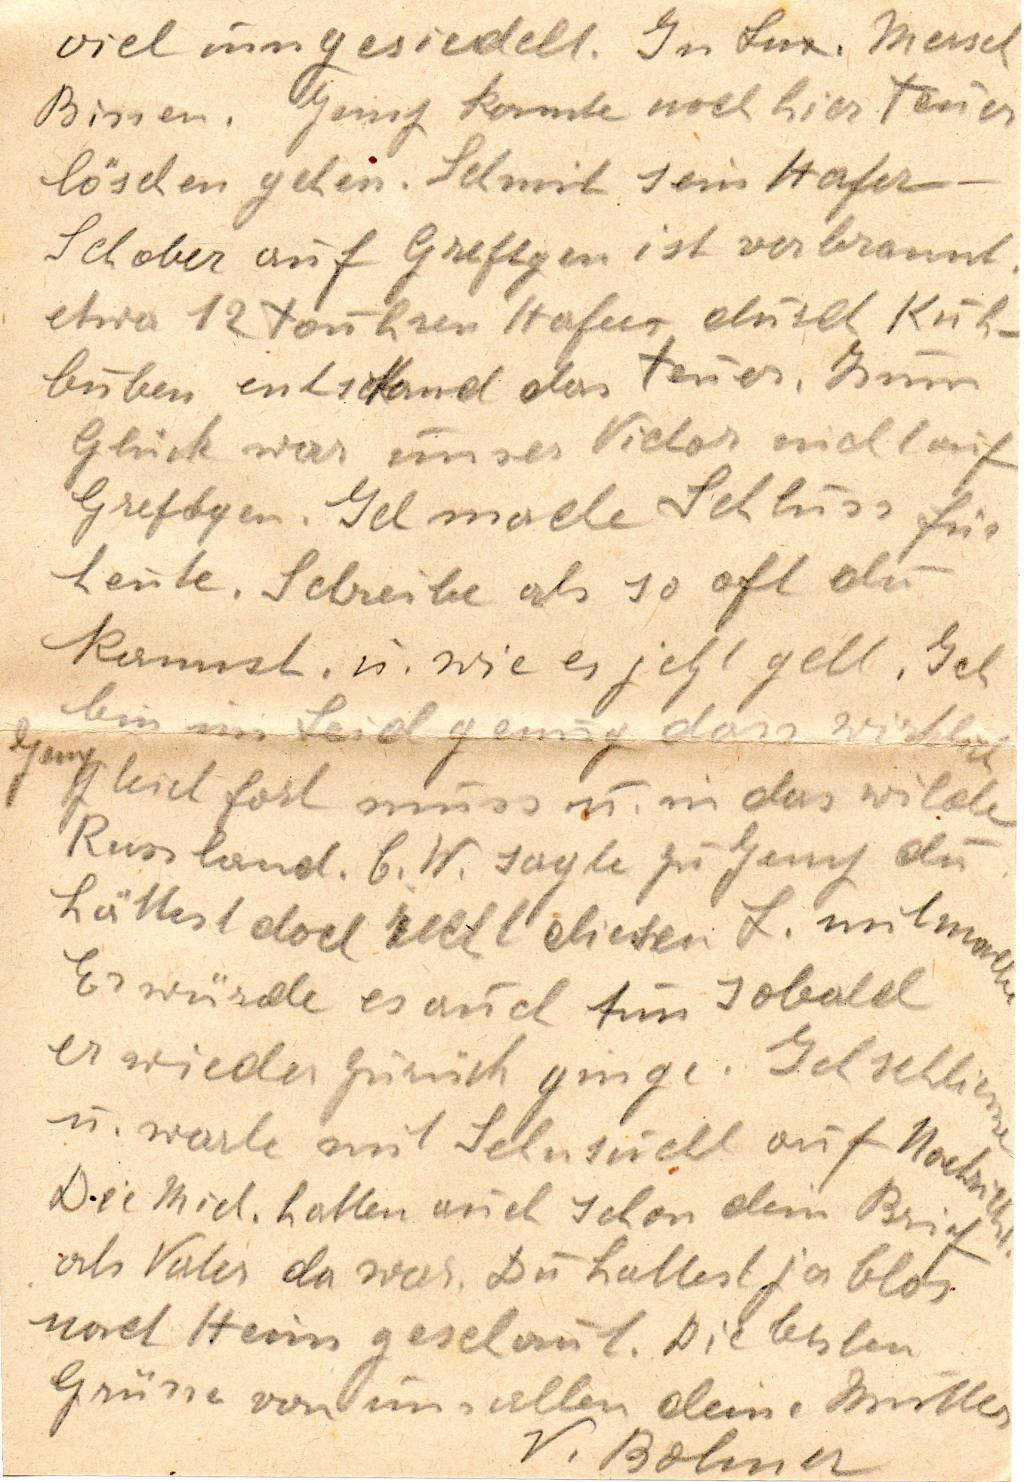 viel umgesiedelt. In Lux. Mersch
Bissen. Jemp konnte noch hier Feuer
löschen gehen. Schmit sein Hafer-
Schober auf Greftgen ist verbrannt.
etwa 12 Fouhren Hafer durch Küh-
buben entstand das Feuer. Zum
Glück war unser Victor nicht auf
Greftgen. Ich mache Schluss für
heute. Schreibe als so oft du
kannst. u. wie es jetzt geht. Ich
bin im Leid genug dass wirklich
Jemp
gleich fort muss u. in das wilde
Russland. C. W. sagte zu Jemp du
hättest doch recht diesen L. mitmache
Er würde es auch tun sobald
er wieder zurück ginge. Ich schliesse
u. warte mit Sehnsucht auf Nachricht.
Die Mich. hatten auch schon dein Brief
als Vater da war. Du hattest ja blos
nach Heim geschaut. Die besten
Grüsse von uns allen deine Mutter
V. Bohmer